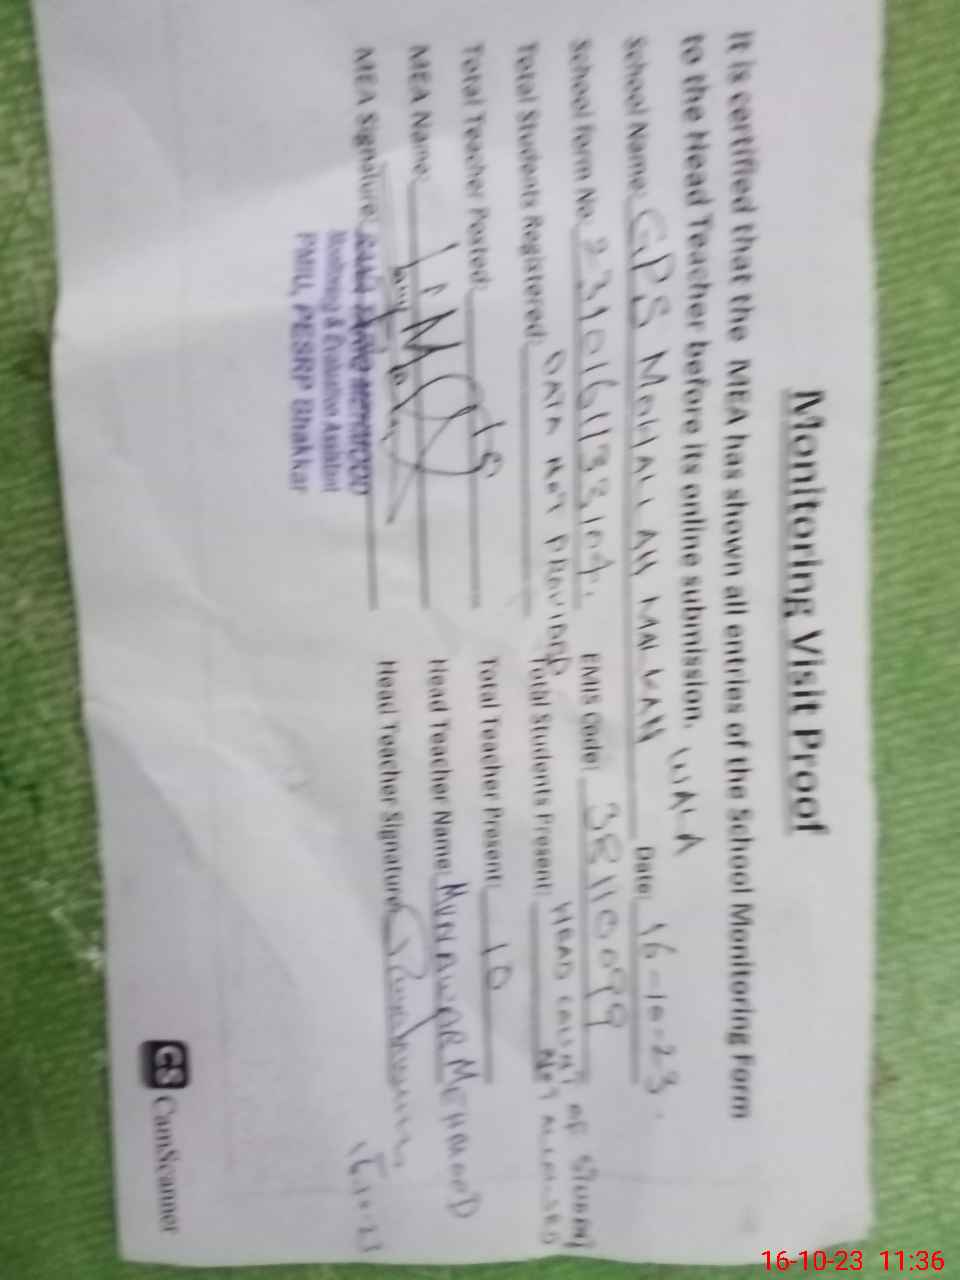 Monitoring Visit Proof
It is certified that the MEA has shown all entries of the School Monitoring Form
to the Head Teacher before its online submission.
WALA
School Name: GPS MOHALLAH MALKAH Date: 16-10-23.
School form No. EMIS Code: 38110099
DATA NOT PROVIDED HEAD COUNT OF STUDENT
NOT ALLOWED
Total Students Registered: Total Students Present:
Total Teacher Posted: 15 Total Teacher Present: 10
MEA Name: Head Teacher Name: MUNAWAR MEHMOOD
MEA Signature: Head Teacher Signature:
MEHMOOD
Monitoring & Evaluation Assistant
PMIU, PESRP Bhakkar
CS CamScanner
16-10-23 11:36